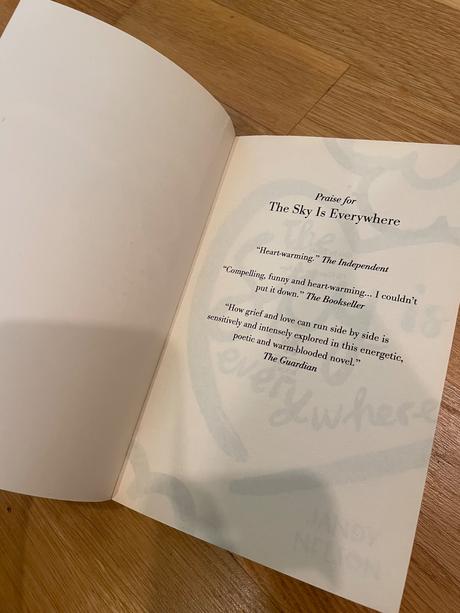 Praise for
The Sky Is Everywhere
“Heart-warming.” The Independent
“Compelling, funny and heart-warming... I couldn’t
put it down.” The Bookseller
“How grief and love can run side by side is
sensitively and intensely explored in this energetic,
poetic and warm-blooded novel.”
The Guardian
The
everywhere